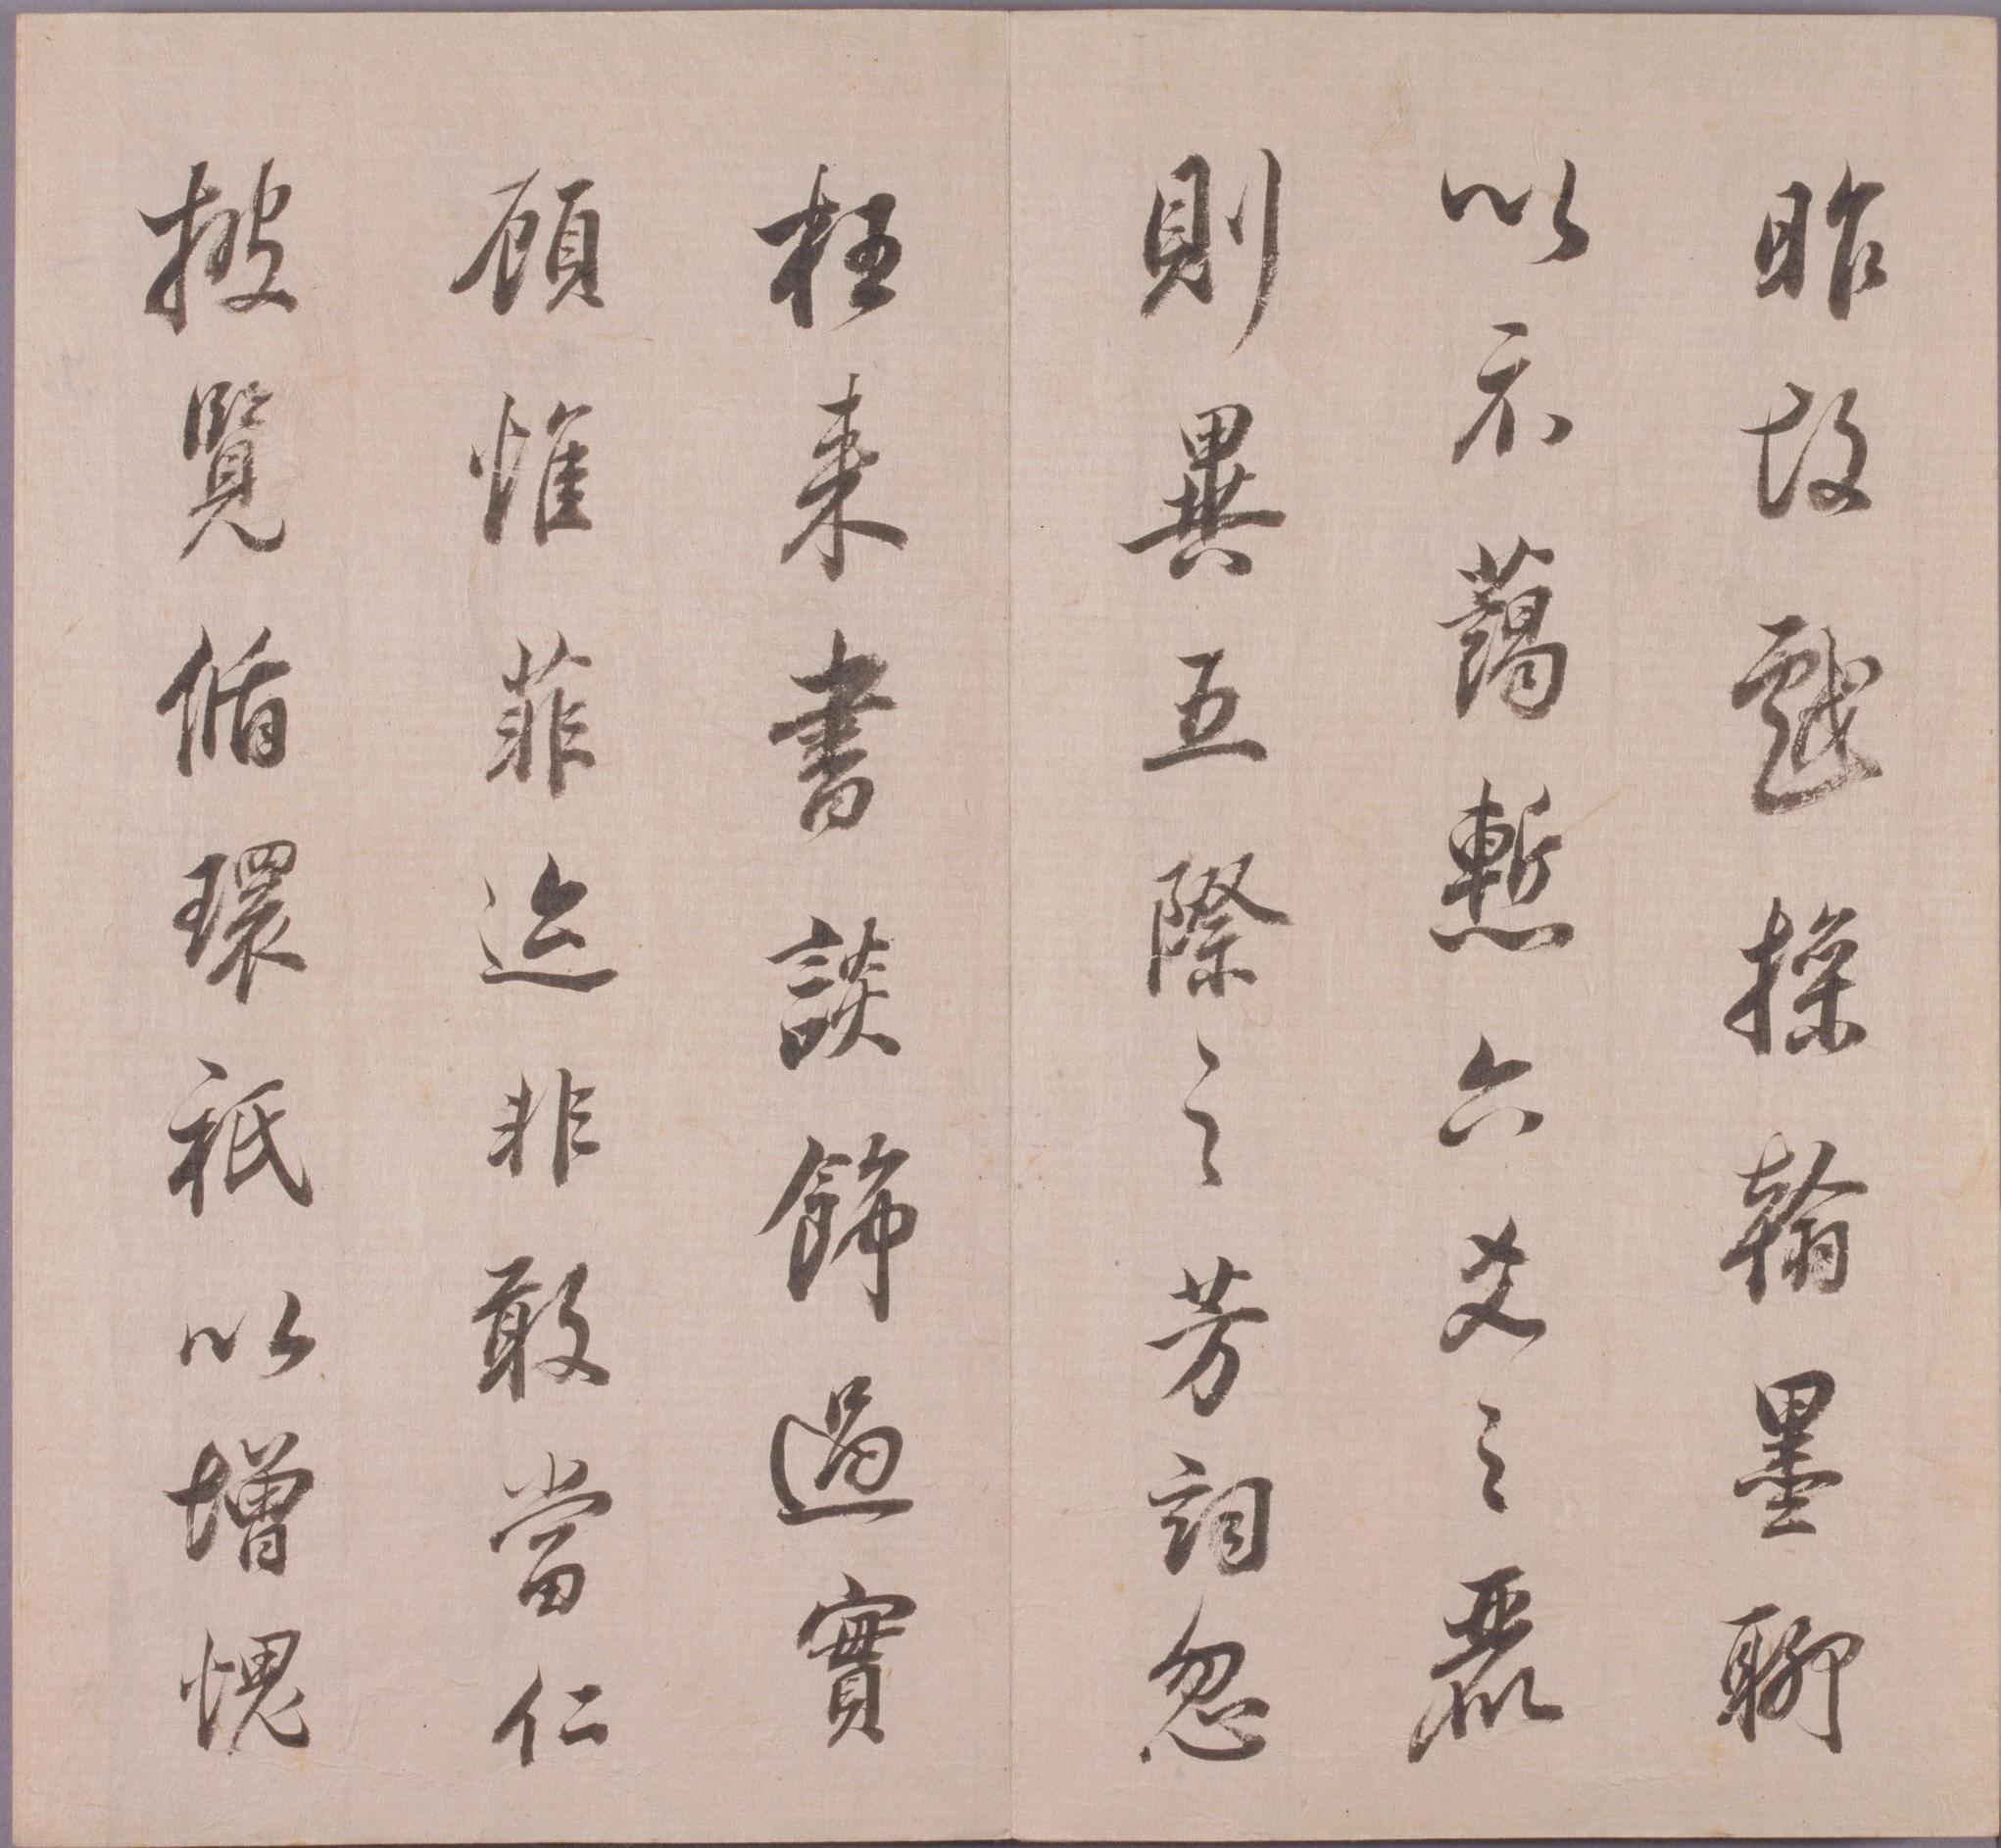 昨故戲操翰墨聊
以示藹慙六爻之麗
則異五際之芳詞忽
枉来書談飾過實
顧惟菲迹非敢當仁
披覽循環祇以增愧